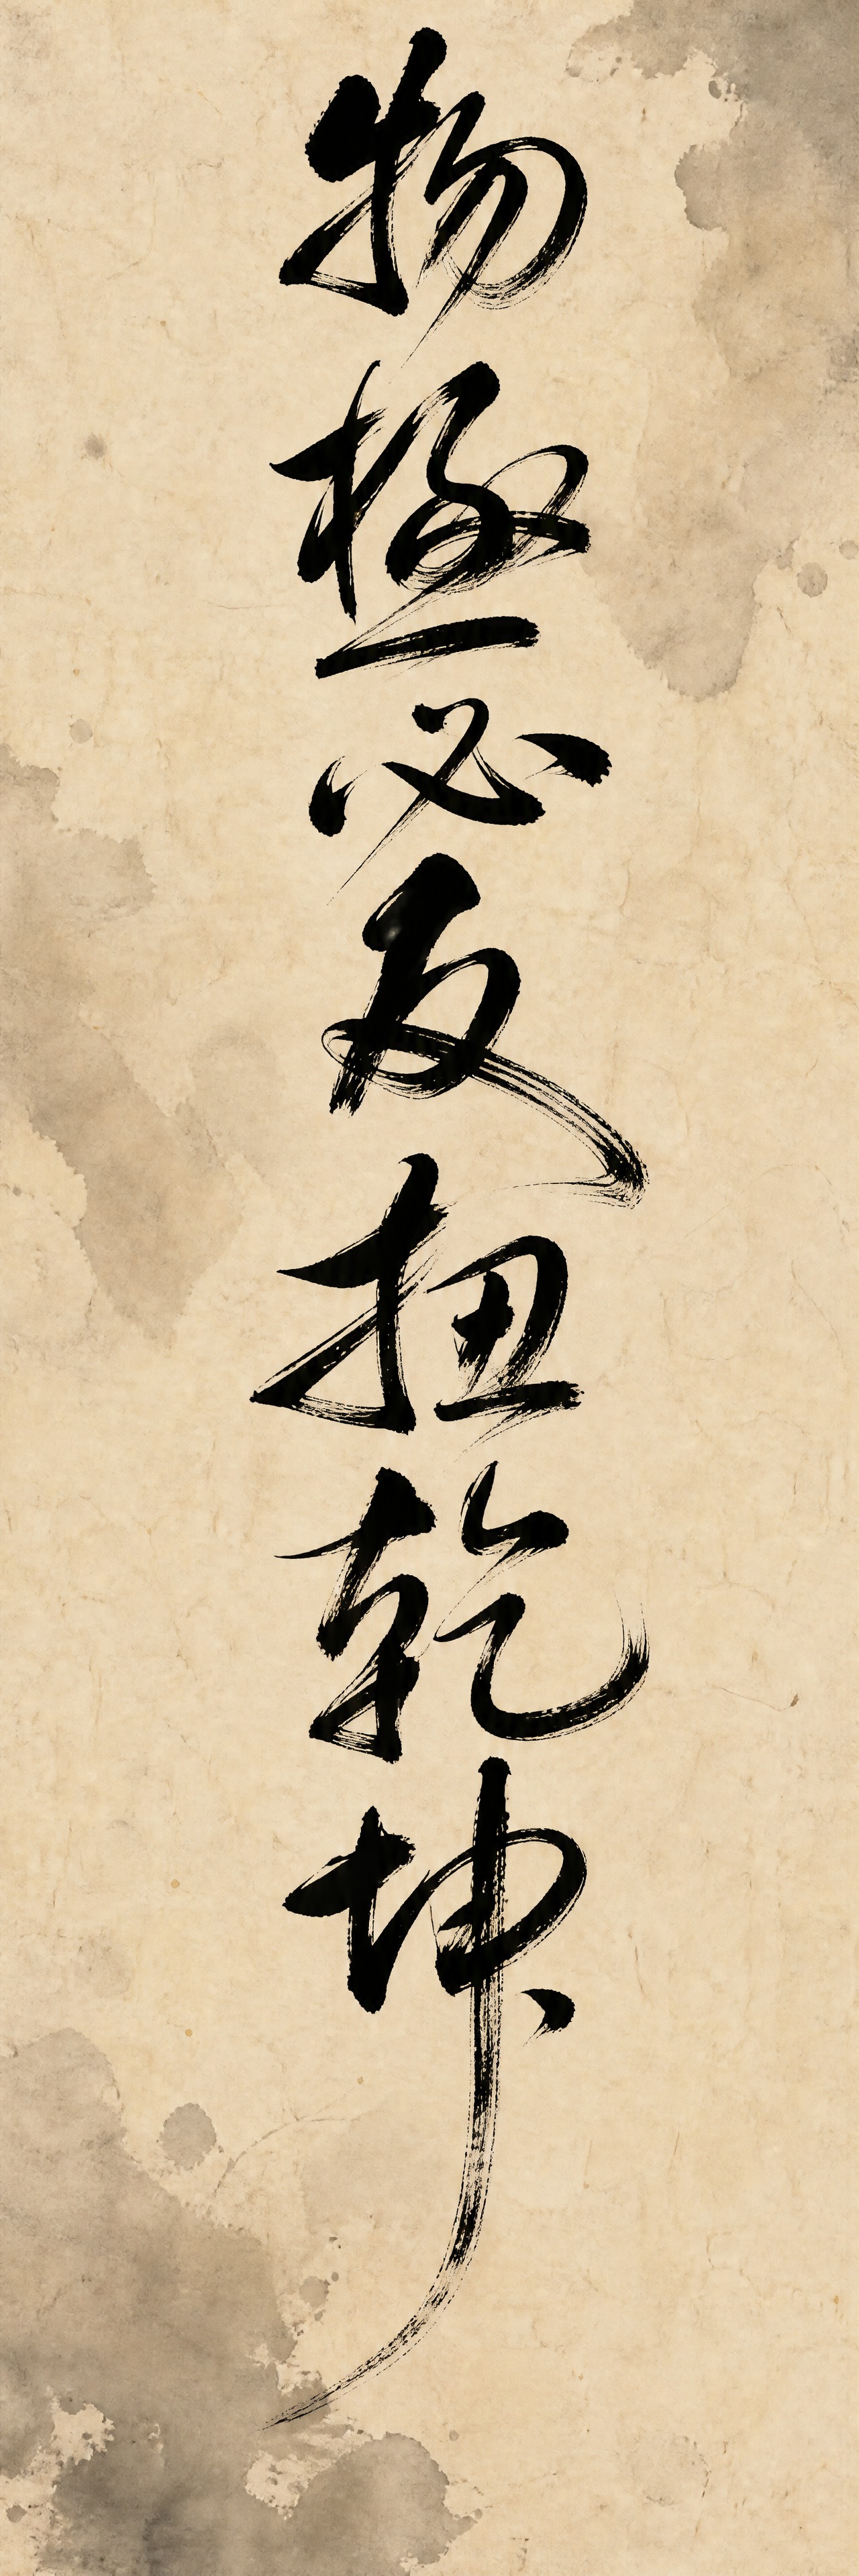 物極必反扭乾坤